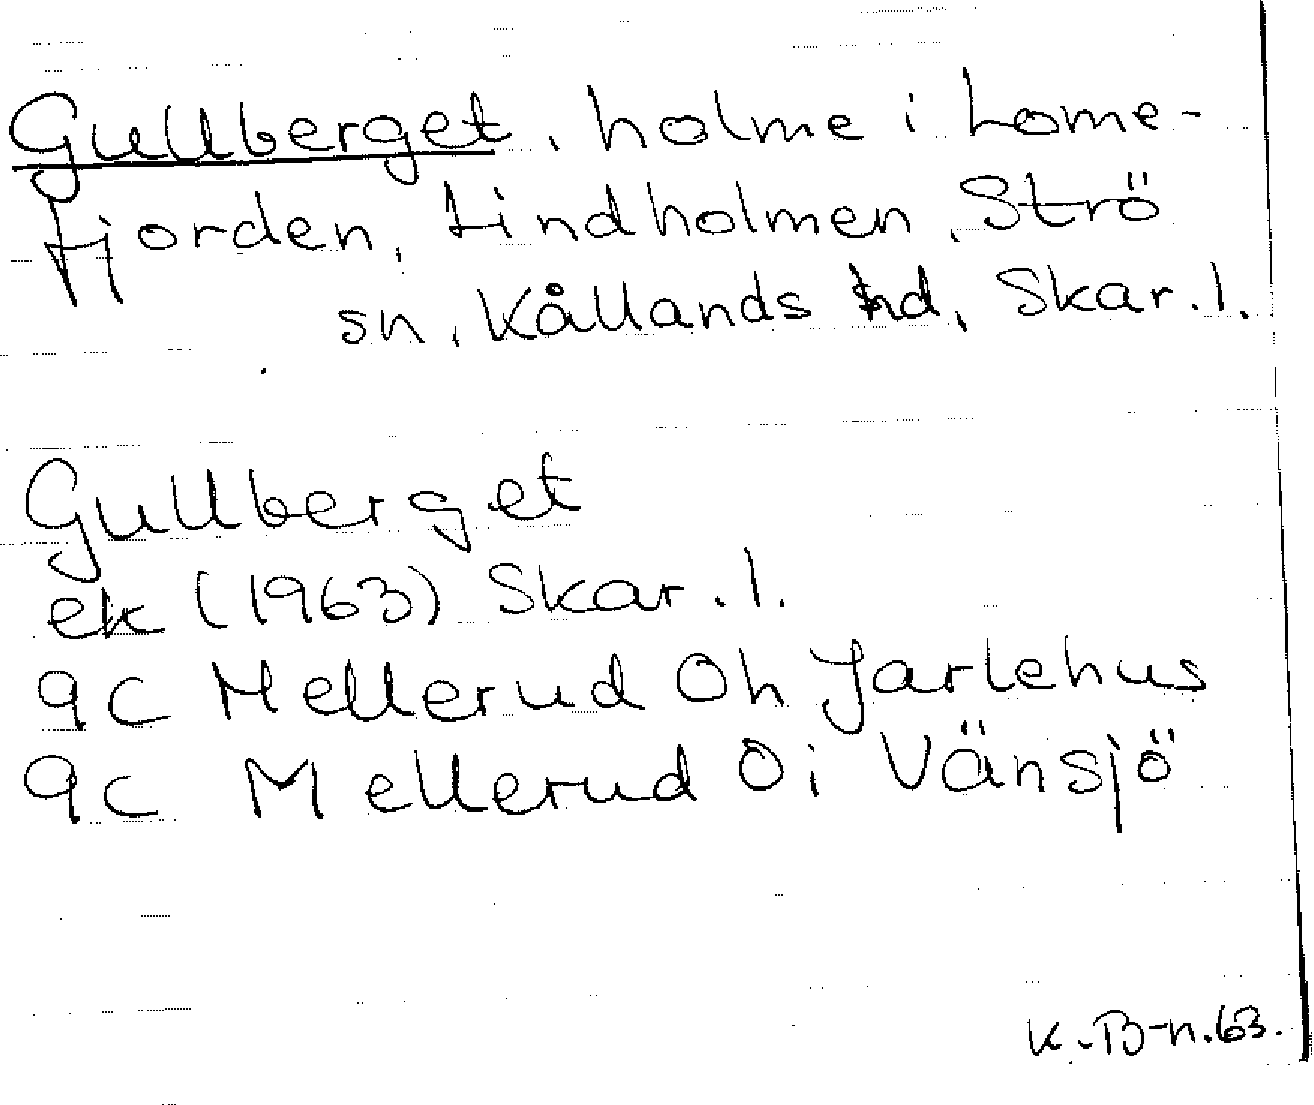 Gullberget, holme i Lome-
fjorden, Lindholmen, Strö
sn, Kållands hd, Skar. l.
Gullberget
ek (1963) Skar. l.
9C Mellerud 0h Jarlehus
9C Mellerud 0i Vänsjö
K. B-n. 63.